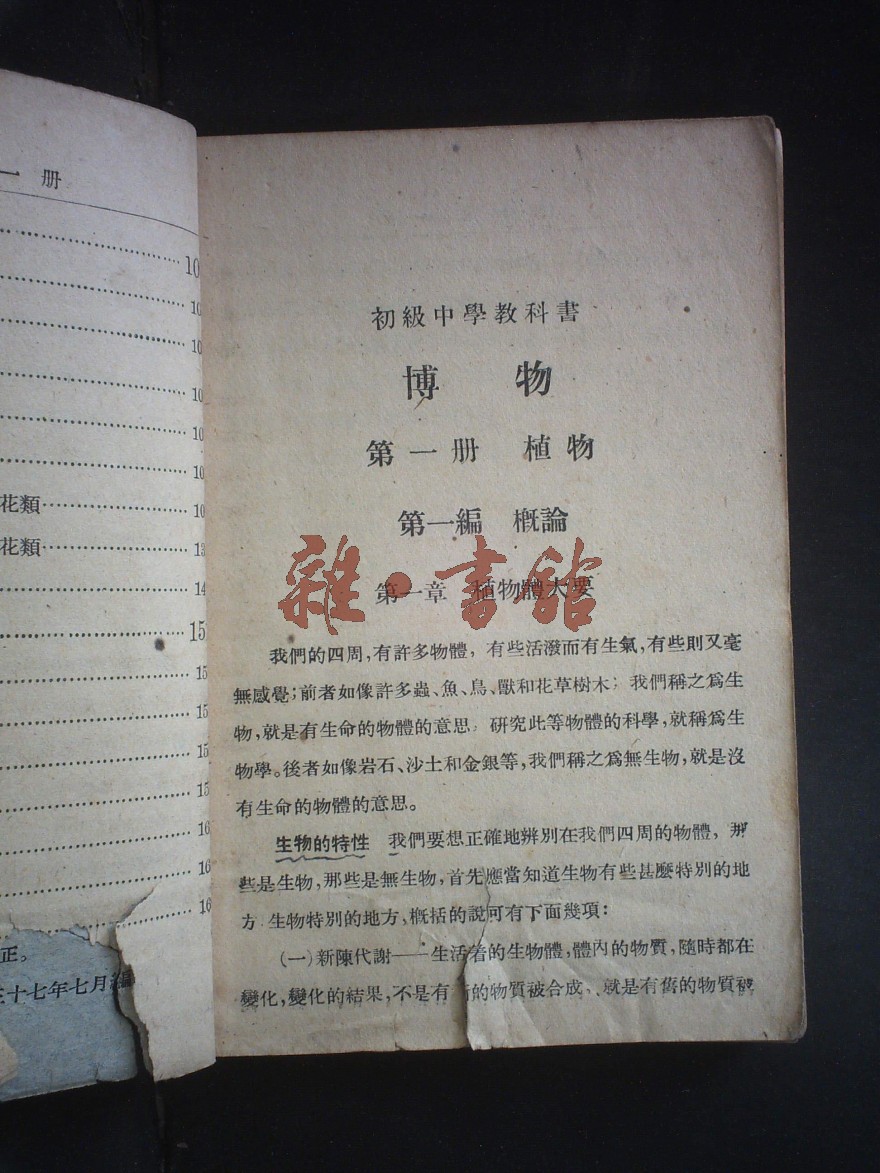 一册
10
10
10
10
10
10
花類 10
花類 13
14
15
15
15
15
15
16
16
16
正。
三十七年七月
初級中學教科書
博 物
第一册 植物
第一編 概論
第一章 植物體大要
雜·書館
我們的四周,有許多物體,有些活潑而有生氣,有些則又毫
無感覺;前者如像許多蟲、魚、鳥、獸和花草樹木;我們稱之爲生
物,就是有生命的物體的意思 研究此等物體的科學,就稱爲生
物學。後者如像岩石、沙土和金銀等,我們稱之爲無生物,就是沒
有生命的物體的意思。
生物的特性 我們要想正確地辨別在我們四周的物體,那
些是生物,那些是無生物,首先應當知道生物有些甚麼特別的地
方 生物特別的地方,概括的說可有下面幾項:
(一)新陳代謝——生活着的生物體,體內的物質,隨時都在
變化,變化的結果,不是有 的物質被合成、就是有舊的物質被